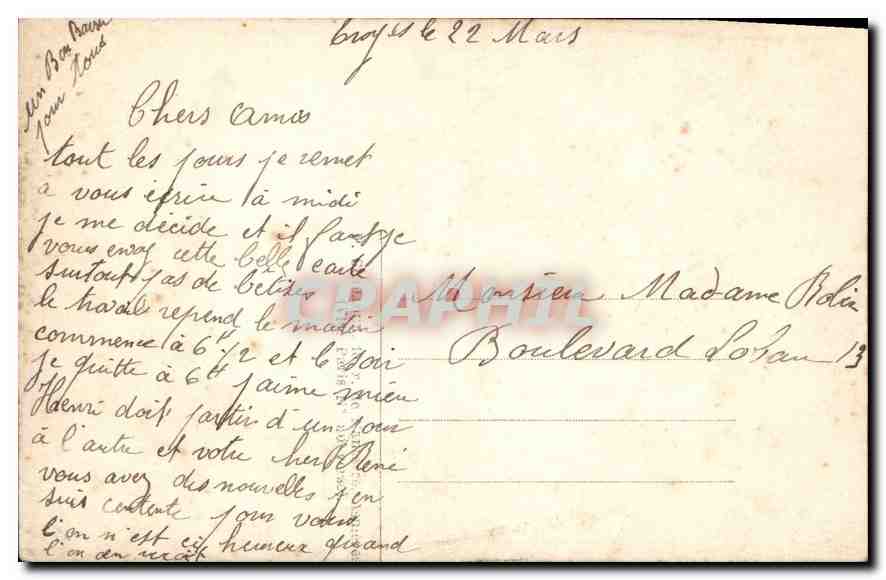 Un Bon Baiser
pour tous
Troyes le 22 Mars
Chers Amis
tout les jours je remet
a vous écrire à midi
je me décide et il faut je
vous envoy cette belle carte
surtout pas de bêtises
le travail reprend le matin
commence à 6h 1/2 et le soir
je quitte à 6h j'aime mieu
Henri doit partir d'un jour
à l'autre et votre cher René
vous avez des nouvelles j'en
suis contente pour vous
l'on n'est si heureux quand
l'on en reçoit
Monsieur Madame Rolin
Boulevard Lobau 13
CPAPHIL